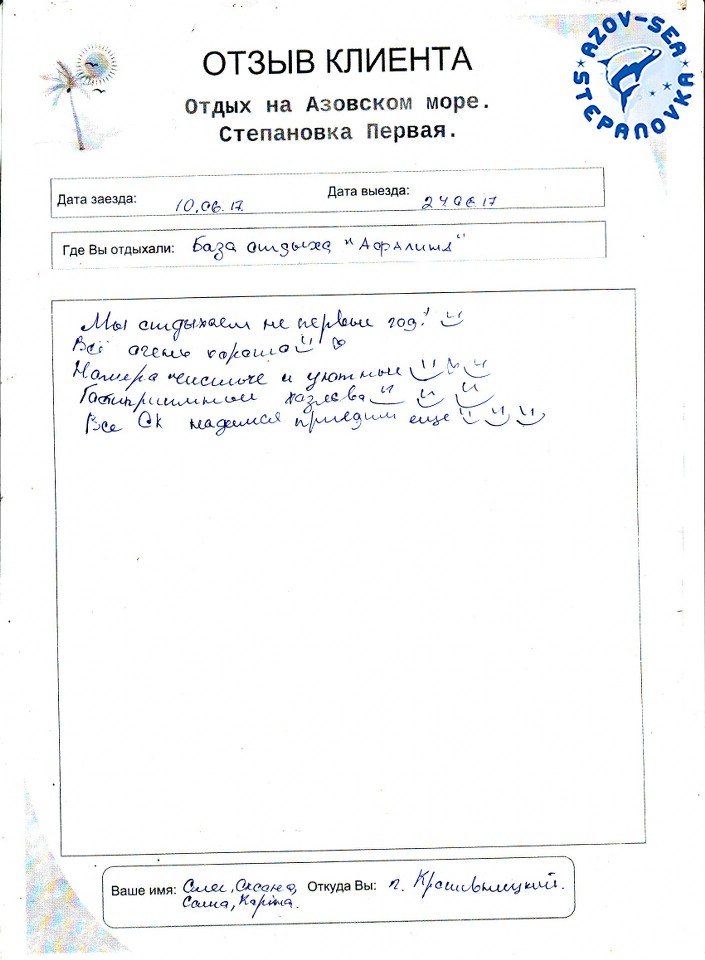 ОТЗЫВ КЛИЕНТА
AZOV-SEA
STEPANOVKA
Отдых на Азовском море.
Степановка Первая.
Дата заезда: 10.06.17
Дата выезда: 24 06 17
Где Вы отдыхали: База отдыха "Афалина"
Мы отдыхаем не первый год!
Всё очень хорошо
Номера чистые и уютные
Гостиприимные хозяева
Все Ок надеимся приедим еще
Ваше имя: Олег, Оксана, Откуда Вы: п.
Саша, Карина.